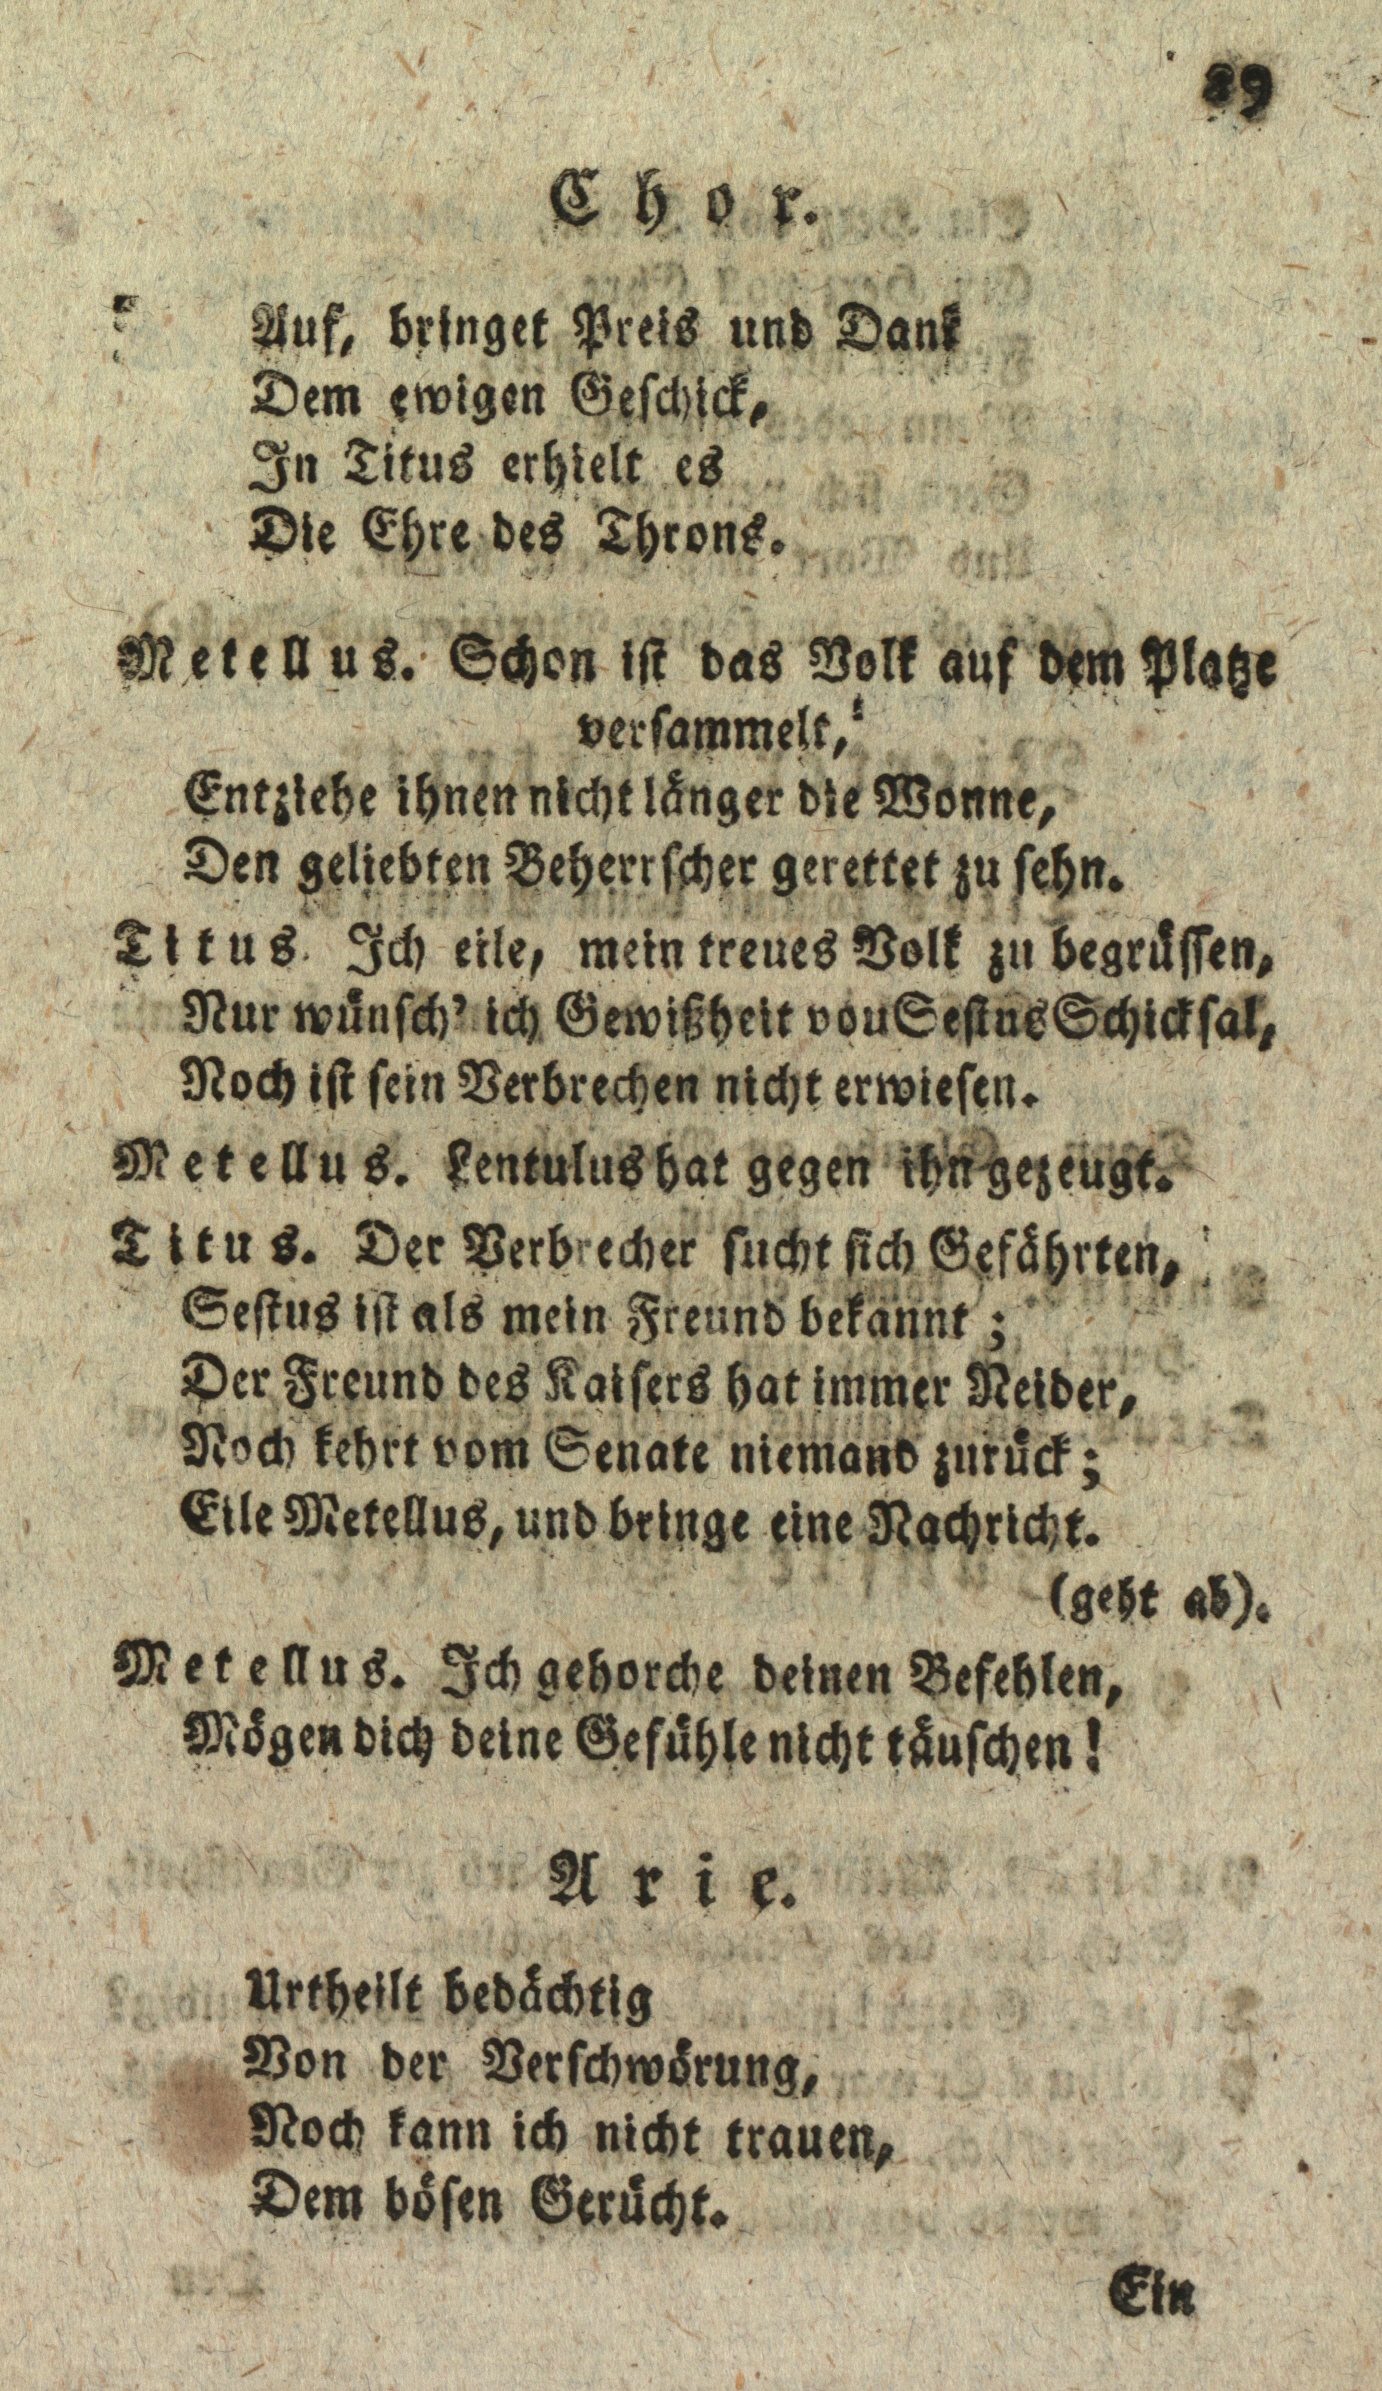 89
Chor.
Auf, bringet Preis und Dank
Dem ewigen Geschick,
In Titus erhielt es
Die Ehre des Throns.
Metellus. Schon ist das Volk auf dem Platze
versammelt,
Entziehe ihnen nicht länger die Wonne,
Den geliebten Beherrscher gerettet zu sehn.
Titus. Ich eile, mein treues Volk zu begrüssen,
Nur wünsch' ich Gewißheit von Sestus Schicksal,
Noch ist sein Verbrechen nicht erwiesen.
Metellus. Lentulus hat gegen ihn gezeugt.
Titus. Der Verbrecher sucht sich Gefährten,
Sestus ist als mein Freund bekannt;
Der Freund des Kaisers hat immer Neider,
Noch kehrt vom Senate niemand zurück;
Eile Metellus, und bringe eine Nachricht.
(geht ab).
Metellus. Ich gehorche deinen Befehlen,
Mögen dich deine Gefühle nicht täuschen!
Arie.
Urtheilt bedächtig
Von der Verschwörung,
Noch kann ich nicht trauen,
Dem bösen Gerücht.
Ein